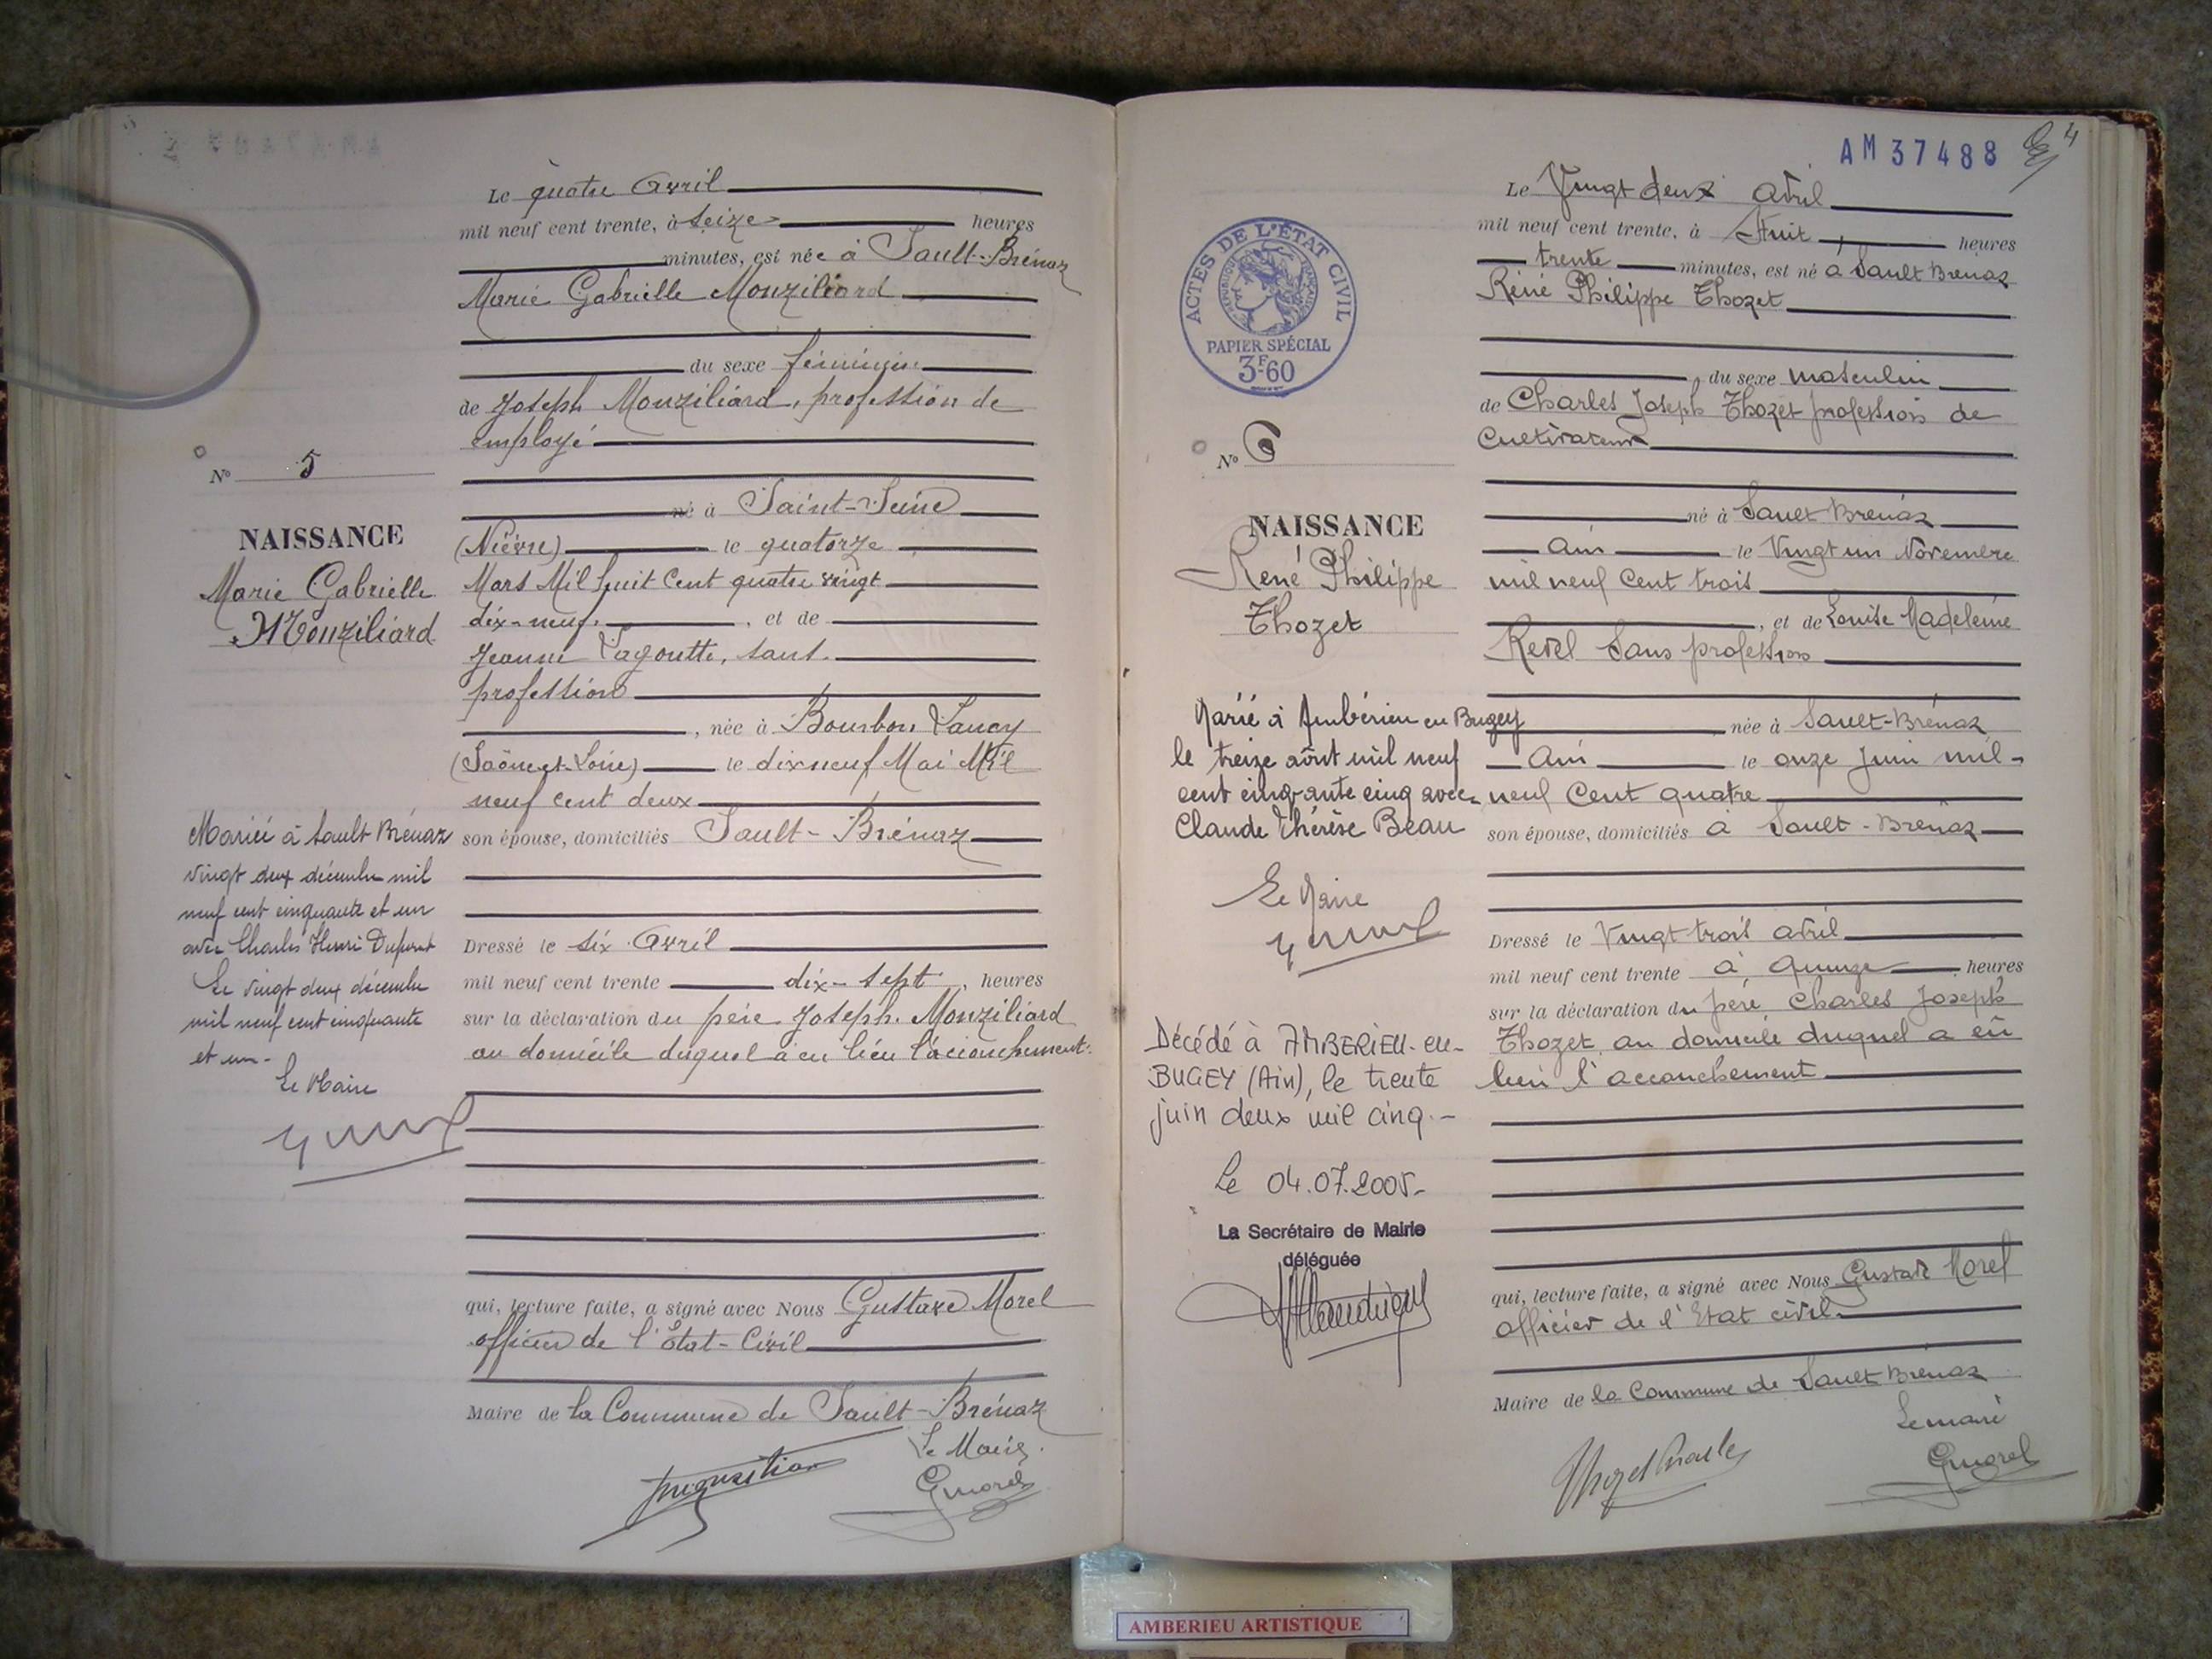 Le quatre Avril
mil neuf cent trente, à seize heures
minutes, est née à Sault-Brénaz
Marie Gabrielle Monziliard
du sexe féminin
de Joseph Monziliard, profession de
employé
N° 5
né à Saint-Seine
NAISSANCE
(Nièvre) le quatorze
Marie Gabrielle
Mars Mil huit Cent quatre vingt
Monziliard
dix-neuf, et de
Jeanne Lagoutte, sans
profession
, née à Bourbon Lancy
(Saône-et-Loire) le dix neuf Mai Mil
neuf cent deux
son épouse, domiciliés Sault-Brénaz
Mariée à Sault Brénaz
vingt deux décembre mil
neuf cent cinquante et un
avec Charles Henri
Le vingt deux décembre
mil neuf cent cinquante
et un-
Le Maire
Dressé le six Avril
mil neuf cent trente dix-sept, heures
sur la déclaration du père Joseph Monziliard
au domicile duquel a eu lieu l'accouchement.
qui, lecture faite, a signé avec Nous Gustave Morel
officier de l'Etat-Civil
Maire de la Commune de Sault-Brénaz
Le Maire
GMorel
AM37488
4
Le Vingt deux avril
mil neuf cent trente, à Huit heures
trente minutes, est né à Sault Brénaz
René Philippe Thozet
ACTES DE L'ÉTAT CIVIL
RÉPUBLIQUE FRANÇAISE
PAPIER SPÉCIAL
3F60
du sexe masculin
de Charles Joseph Thozet profession de
Cultivateur
N° 6
né à Sault Brénaz
NAISSANCE
Ain le Vingt un Novembre
René Philippe
Thozet
mil neuf Cent trois
, et de Louise Madeleine
Revel Sans profession
née à Sault-Brénaz
Ain le onze Juin mil-
neuf Cent quatre
son épouse, domiciliés à Sault-Brénaz
Marié à Ambérieu en Bugey
le treize août mil neuf
cent cinquante cinq avec
Claude Thérèse Beau
Le Maire
Dressé le Vingt trois avril
mil neuf cent trente à quinze heures
sur la déclaration du père Charles Joseph
Thozet au domicile duquel a eû
lieu l'accouchement
Décédé à AMBERIEU-en-
BUGEY (Ain), le trente
juin deux mil cinq.-
Le 04.07.2005-
La Secrétaire de Mairie
déléguée
qui, lecture faite, a signé avec Nous Gustave Morel
officier de l'Etat civil
Maire de la Commune de Sault Brénaz
Le maire
Thozet Charles
GMorel
AMBERIEU ARTISTIQUE